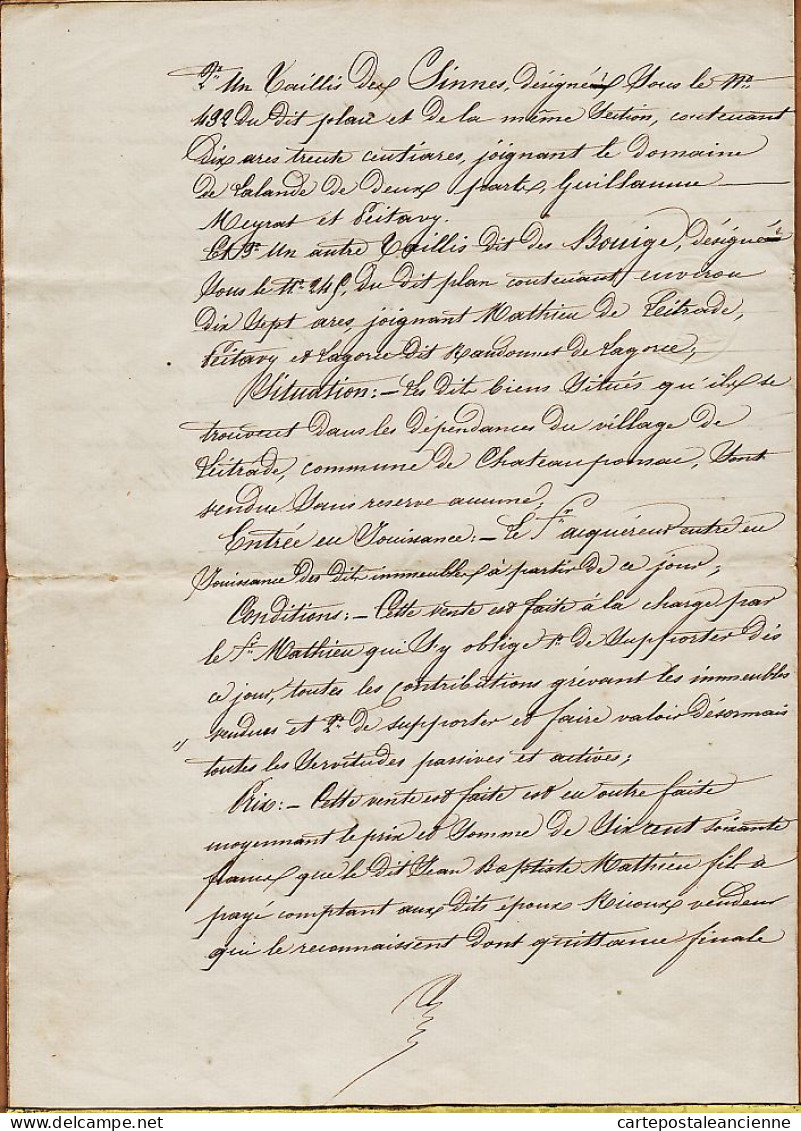 2°. Un Taillis des Sinnes, désigné Sous le N°.
492 du dit plan et de la même Section, contenant
Dix ares trente centiares, joignant le domaine
de Lalande de deux parts, Guillaume
Meyrat et Feitavy.
Et 3°. Un autre Taillis dit des Bouige, désigné
Sous le N°. 245, du dit plan contenant environ
dix Sept ares, joignant Mathieu de Leitrade,
Feitavy et Lagorce dit Randonnet de Lagorce;
Situation:- Les dits biens Situés qu'ils se
trouvent dans les dépendances du village de
Leitrade, commune de Chateauponsac, Sont
vendue Sans reserve aucune;
Entrée en Jouissance:- Le Sr. acquéreur entre en
Jouissance des dits immeubles à partir de ce jour;
Conditions:- Cette vente est faite à la charge par
le Sr. Mathieu qui S'y oblige 1°. de Supporter dès
ce jour, toutes les Contributions grévant les immeubles
vendues et 2°. de supporter et faire valoir désormais
toutes les Servitudes passives et actives;
Prix:- Cette vente est faite est en outre faite
moyennant le prix et Somme de Six cent soixante
francs que le dit Jean Baptiste Mathieu fils a
payé comptant aux dits époux Ricoux vendeur
qui le reconnaissent dont quittance finale
cartepostaleancienne